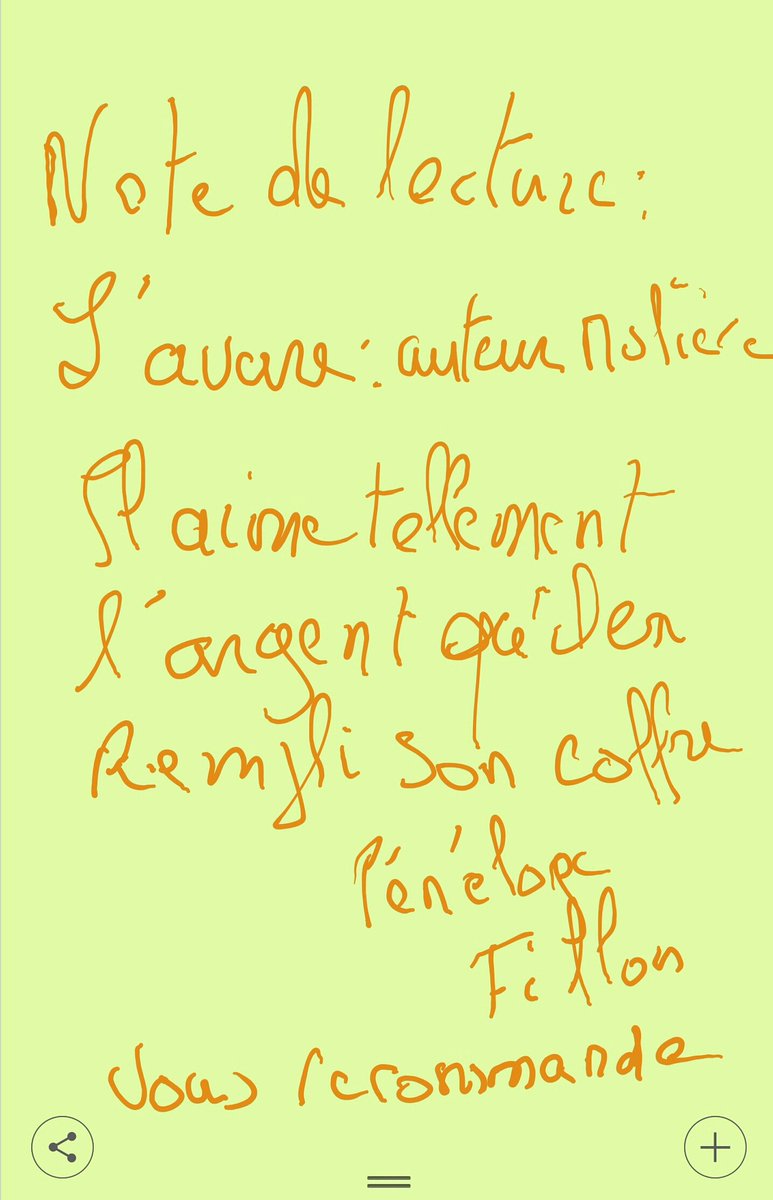 Note de lecture :
L'avare : auteur Molière
Il aime tellement
l'argent qu'il en
Rempli son coffre
Pénélope
Fillon
Vous recommande